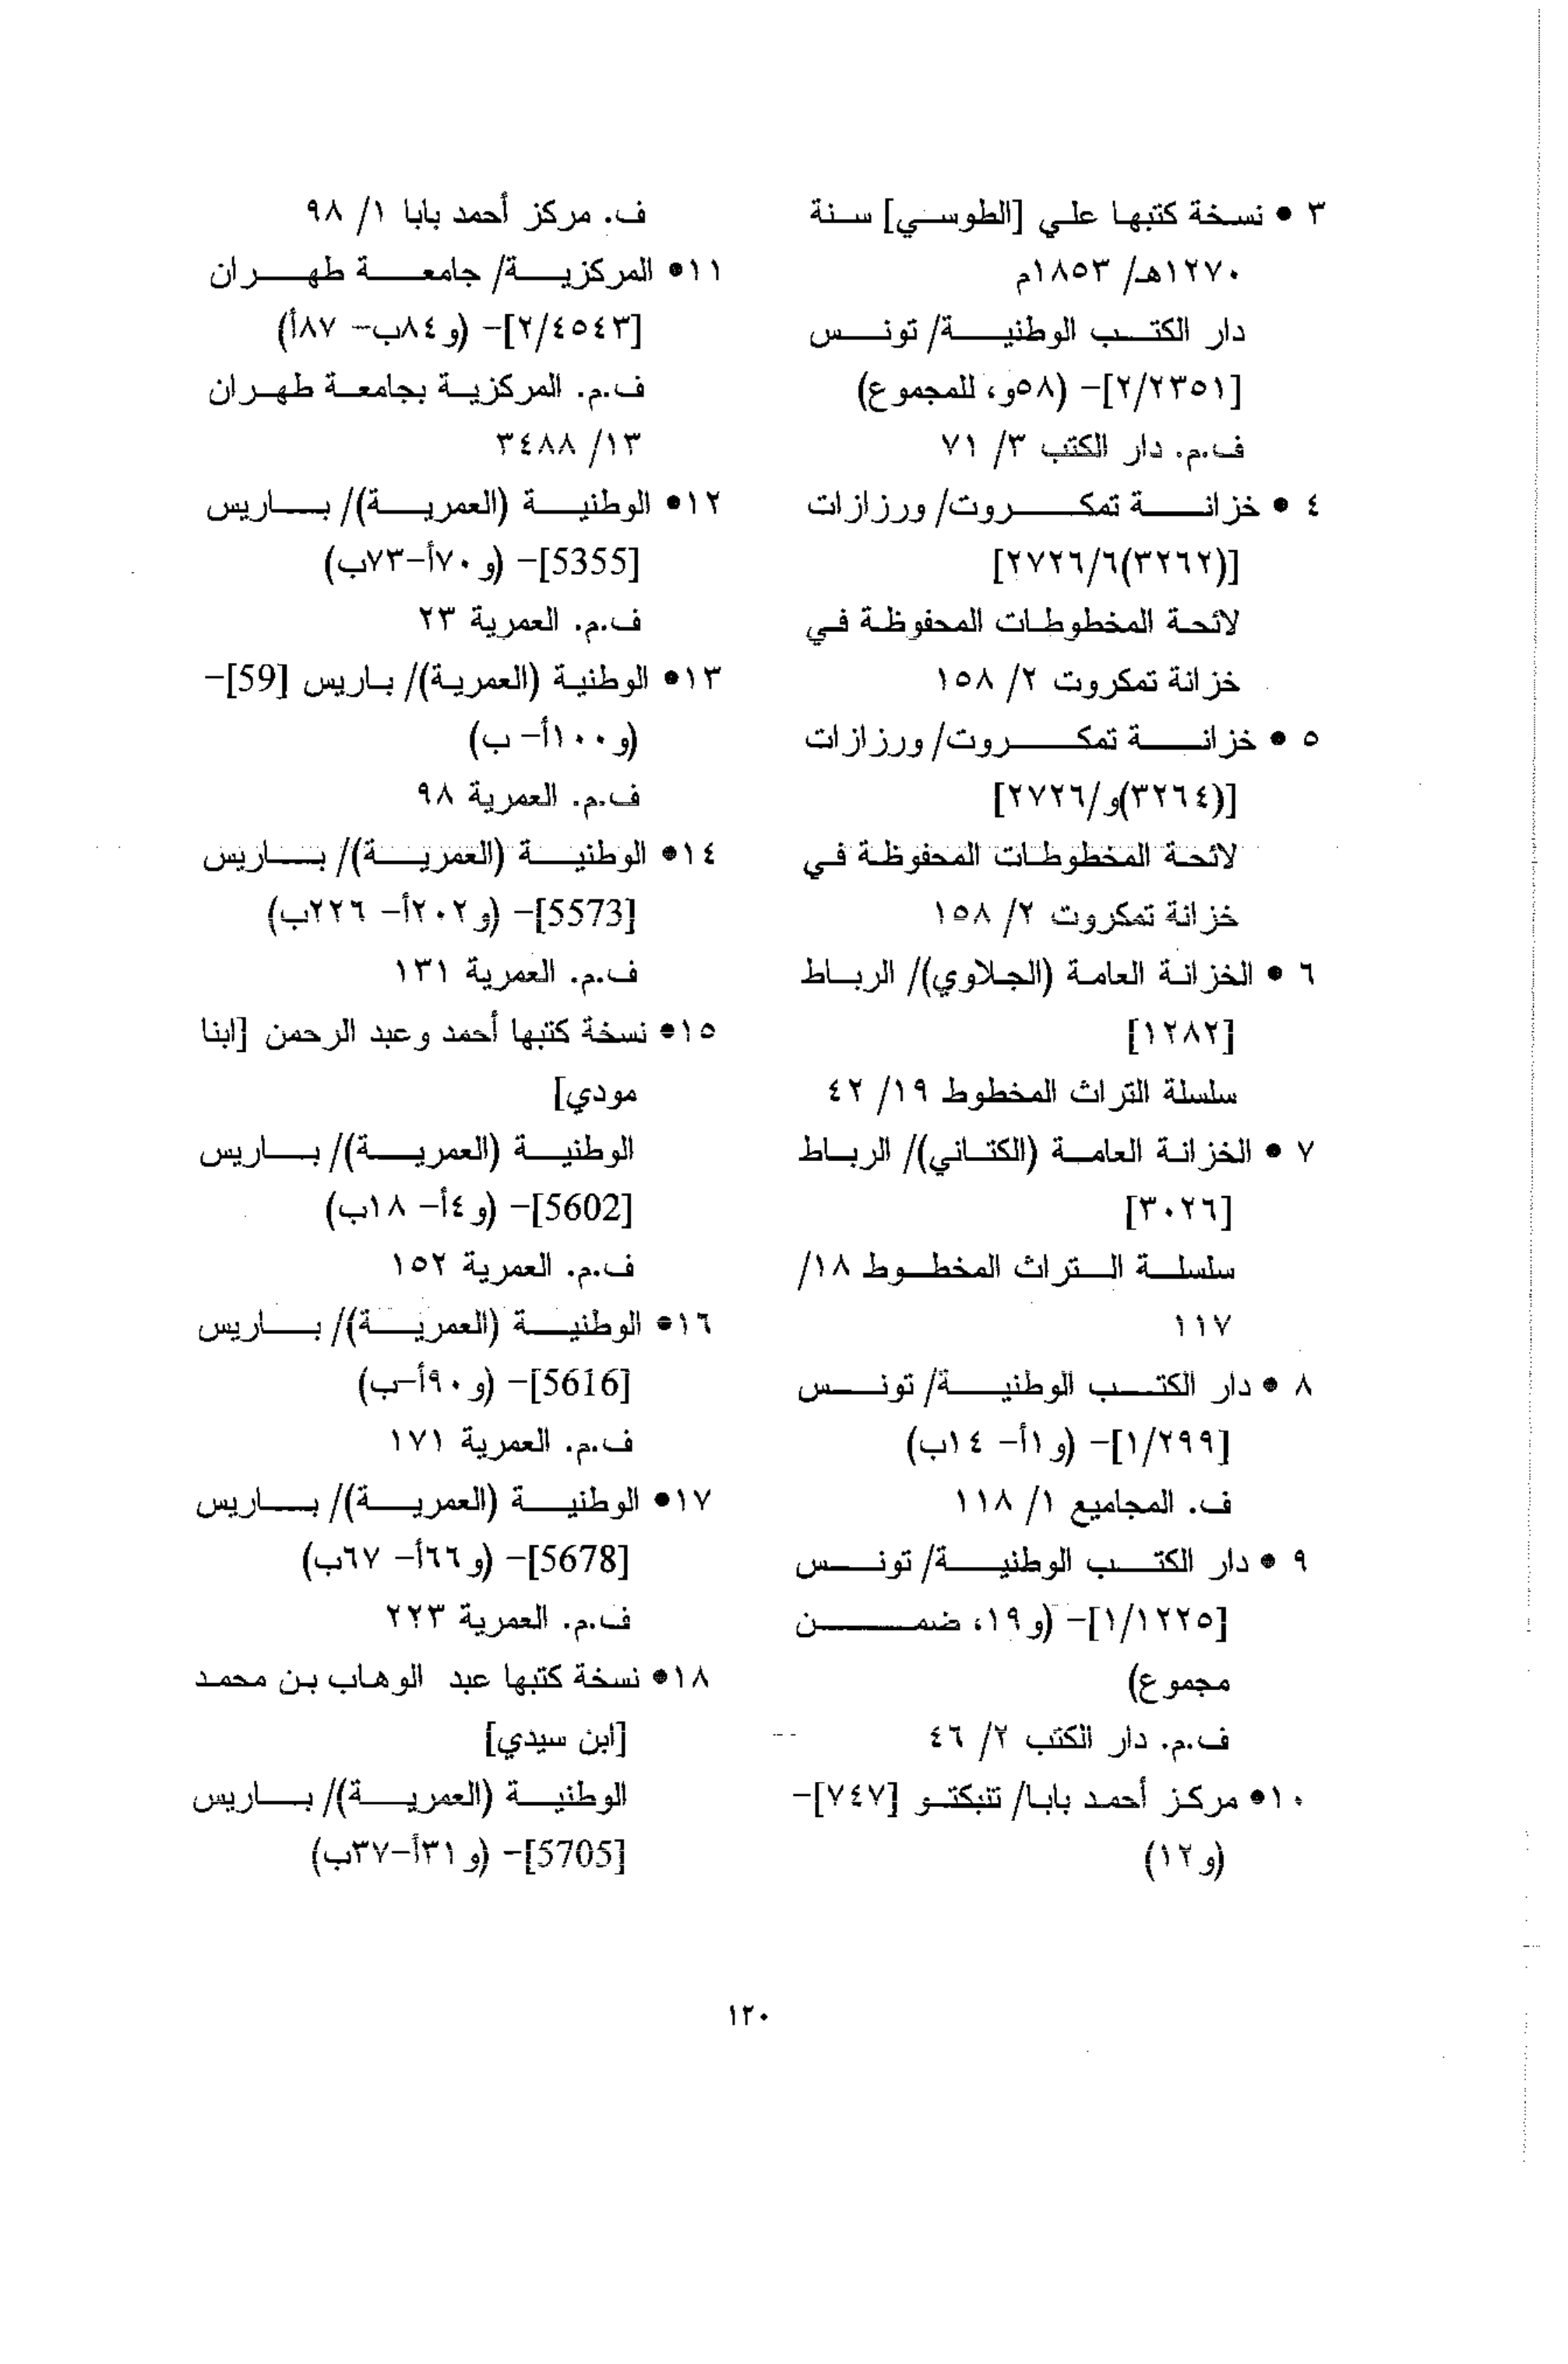 ٣ • نسخة كتبها علي [الطوسي] سنة
١٢٧٠هـ/ ١٨٥٣م
دار الكتب الوطنية/ تونس
[٢/٢٣٥١]- (٥٨و، للمجموع)
ف.م. دار الكتب ٣/ ٧١
٤ • خزانة تمكروت/ ورزازات
[(٣٢٦٢)٦/٢٧٢٦]
لائحة المخطوطات المحفوظة في
خزانة تمكروت ٢/ ١٥٨
٥ • خزانة تمكروت/ ورزازات
[(٣٢٦٤)و/٢٧٢٦]
لائحة المخطوطات المحفوظة في
خزانة تمكروت ٢/ ١٥٨
٦ • الخزانة العامة (الجلاوي)/ الرباط
[١٢٨٢]
سلسلة التراث المخطوط ١٩/ ٤٢
٧ • الخزانة العامة (الكتاني)/ الرباط
[٣٠٢٦]
سلسلة التراث المخطوط ١٨/
١١٧
٨ • دار الكتب الوطنية/ تونس
[١/٢٩٩]- (و١أ- ١٤ب)
ف. المجاميع ١/ ١١٨
٩ • دار الكتب الوطنية/ تونس
[١/١٢٢٥]- (و١٩، ضمن
مجموع)
ف.م. دار الكتب ٢/ ٤٦
١٠• مركز أحمد بابا/ تنبكتو [٧٤٧]-
(و١٢)
ف. مركز أحمد بابا ١/ ٩٨
١١• المركزية/ جامعة طهران
[٢/٤٥٤٣]- (و٨٤ب- ٨٧أ)
ف.م. المركزية بجامعة طهران
١٣/ ٣٤٨٨
١٢• الوطنية (العمرية)/ باريس
[5355]- (و٧٠أ-٧٣ب)
ف.م. العمرية ٢٣
١٣• الوطنية (العمرية)/ باريس [59]-
(و١٠٠أ- ب)
ف.م. العمرية ٩٨
١٤• الوطنية (العمرية)/ باريس
[5573]- (و٢٠٢أ- ٢٢٦ب)
ف.م. العمرية ١٣١
١٥• نسخة كتبها أحمد وعبد الرحمن [ابنا
مودي]
الوطنية (العمرية)/ باريس
[5602]- (و٤أ- ١٨ب)
ف.م. العمرية ١٥٢
١٦• الوطنية (العمرية)/ باريس
[5616]- (و٩٠أ-ب)
ف.م. العمرية ١٧١
١٧• الوطنية (العمرية)/ باريس
[5678]- (و٦٦أ- ٦٧ب)
ف.م. العمرية ٢٢٣
١٨• نسخة كتبها عبد الوهاب بن محمد
[ابن سيدي]
الوطنية (العمرية)/ باريس
[5705]- (و٣١أ-٣٧ب)
١٢٠